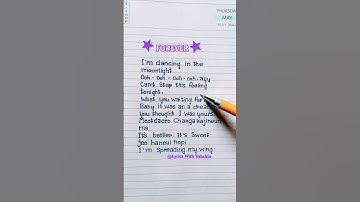 THURSDAY
MAY
FOREVER
I'm dancing in the
moonlight
Ooh-ooh-ooh-ooh, ayy
Cant stop this feeling
tonight,
What you waiting for
Baby it was all a
you thought I was yours
Changa kajineun
ma
Its better, It's sweet
jeo haneul nopi
I'm spreading my wing
@Lyrics With Takshia